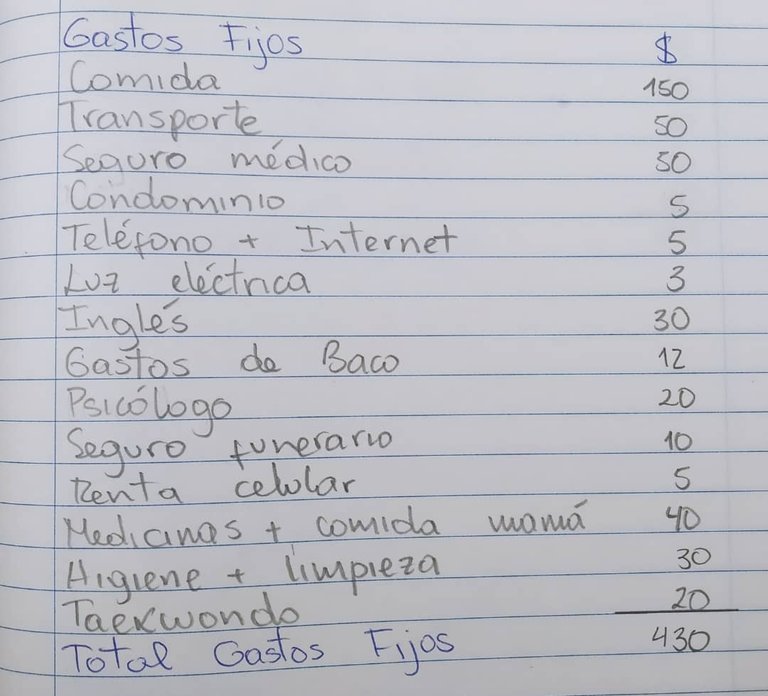 Gastos Fijos $
Comida 150
Transporte 50
Seguro médico 50
Condominio 5
Teléfono + Internet 5
Luz eléctrica 3
Inglés 30
Gastos de Baco 12
Psicólogo 20
Seguro funerario 10
Renta celular 5
Medicinas + comida mamá 40
Higiene + limpieza 30
Taekwondo 20
Total Gastos Fijos 430